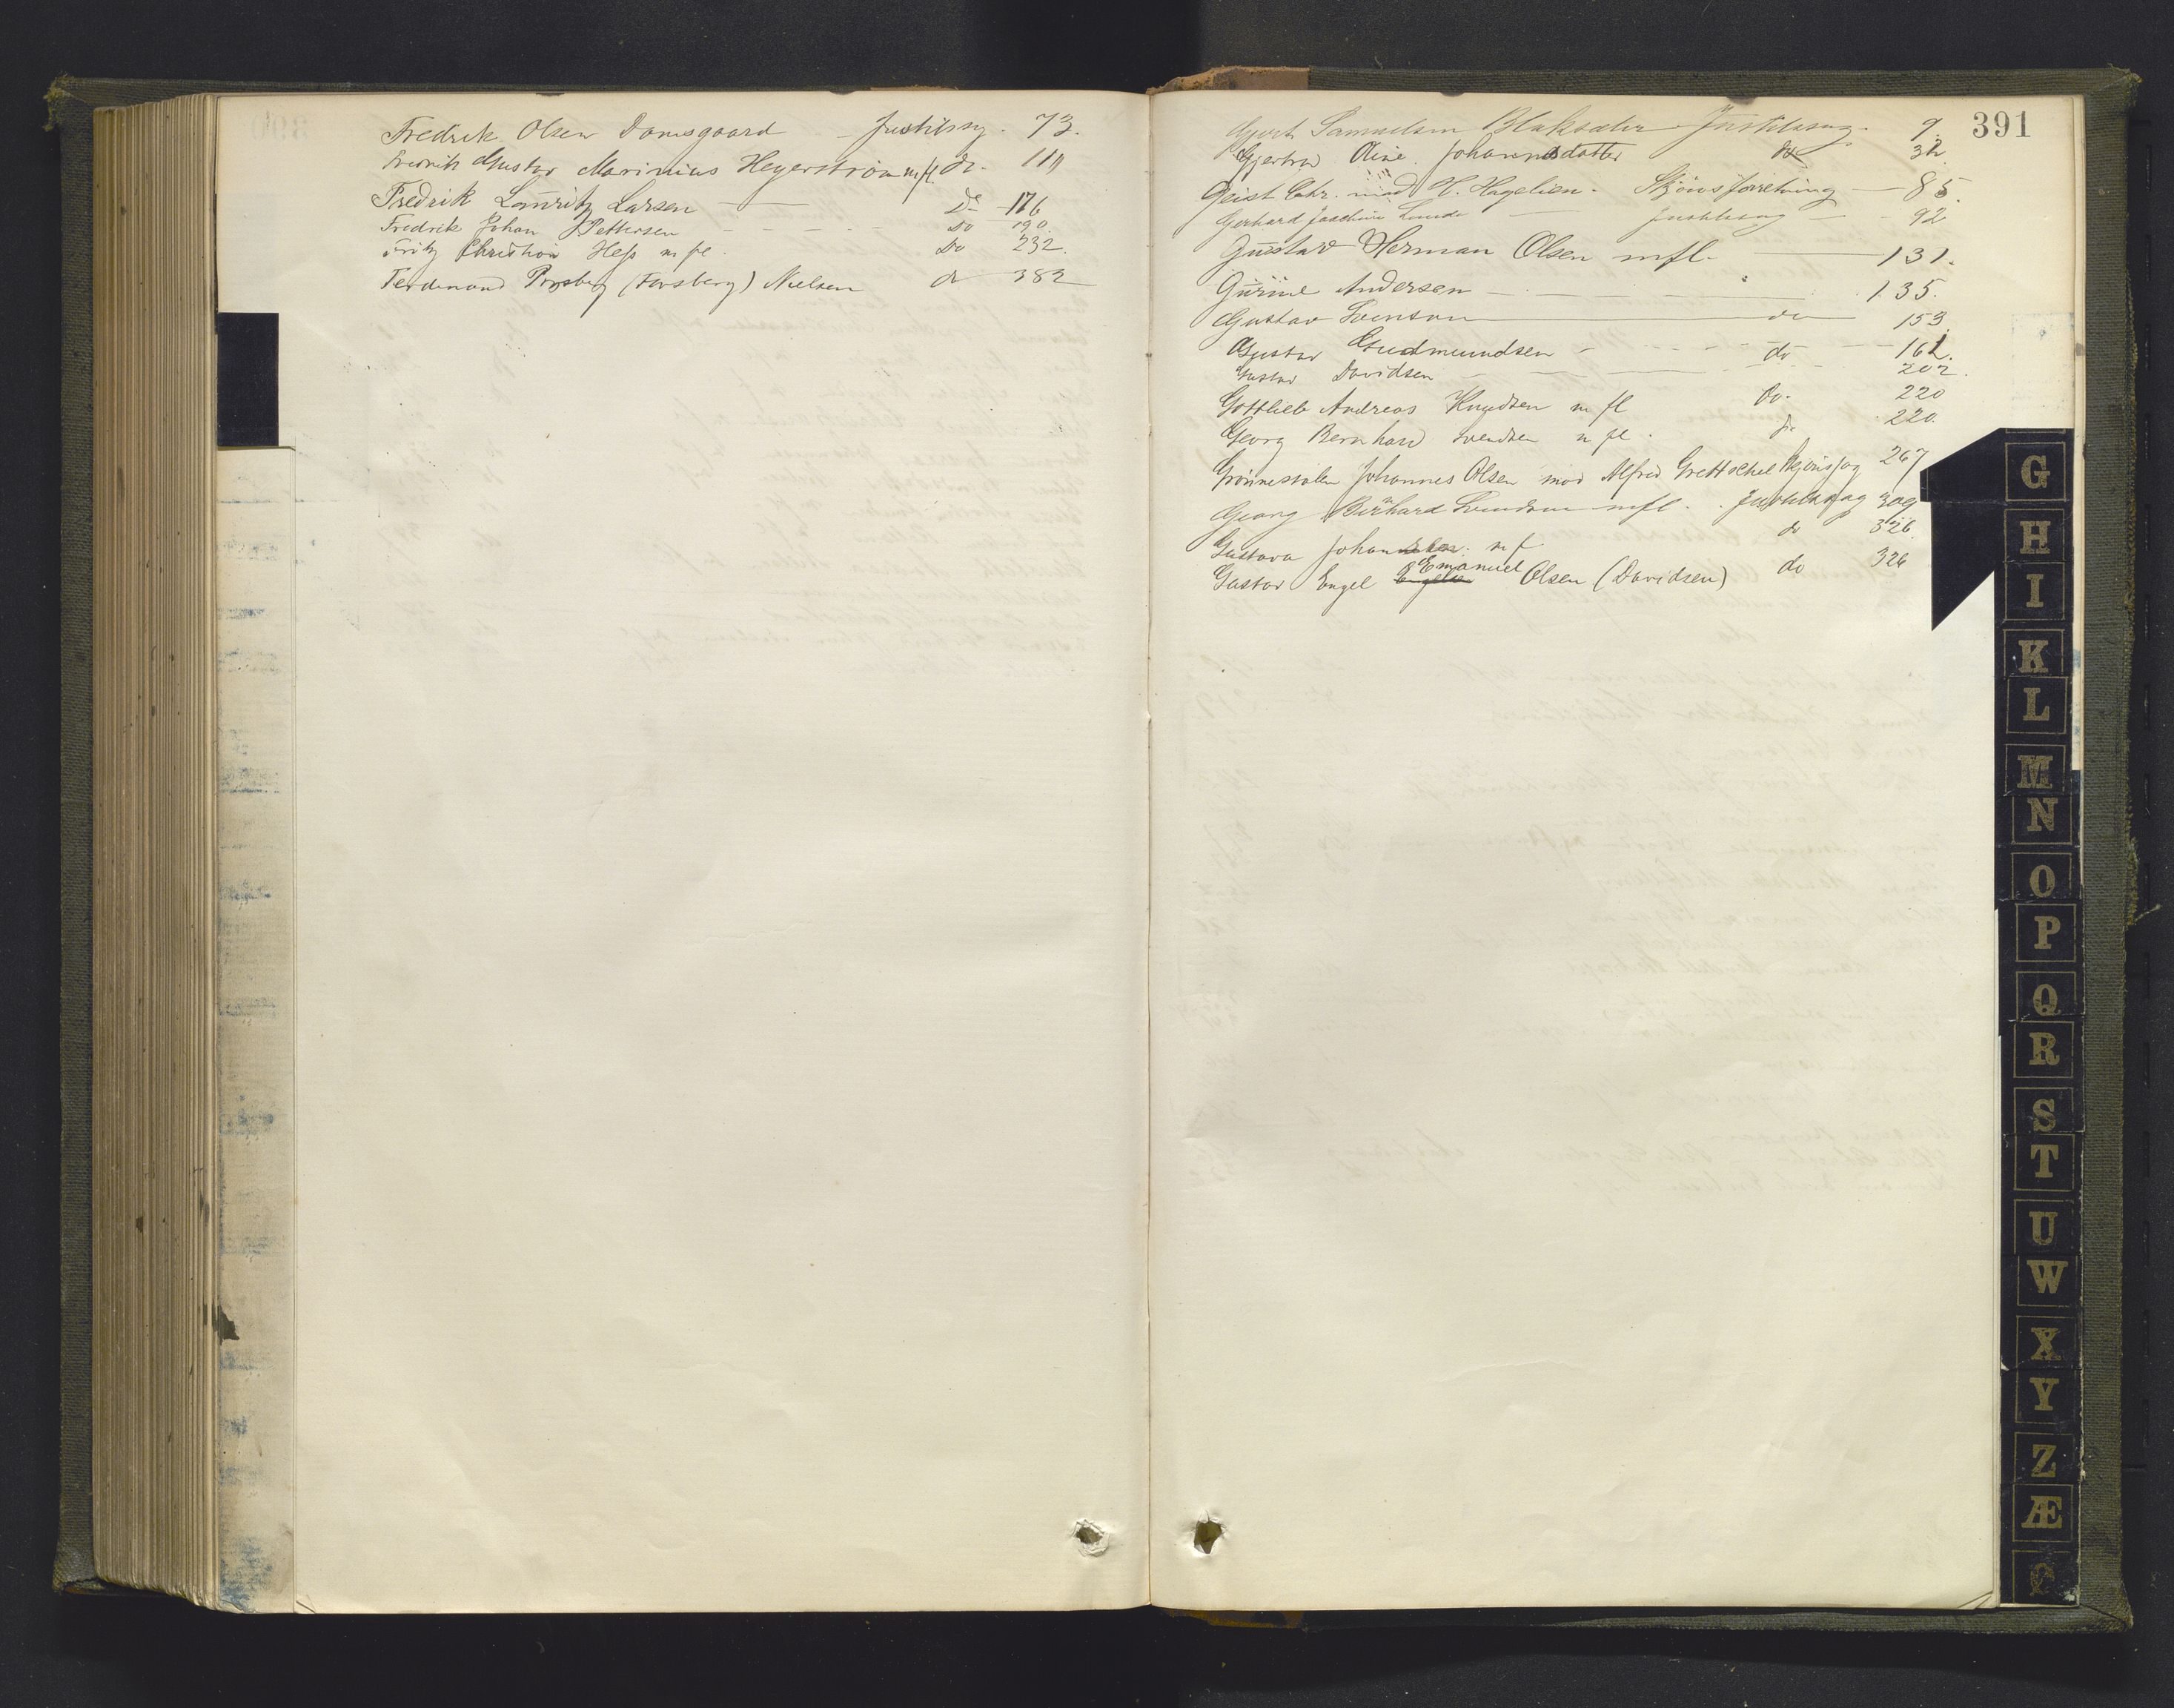 Fredrik Olsen Damsgaard - Justitssag. 73.
Fredrik Gustav Marinius Hegerstrøm m/fl. do. 111
Fredrik Lauritz Larsen Do - 176
Fredrik Johan Pettersen Do 190.
Fritz Christian Hess m fl. Do 232.
Ferdinand (Forsberg) Nielsen do 382
391
Gjert Samuelsen Blaksæter Justitssag. 9.
Gjertrud Oline Johannesdatter do 32
Geist Cahr. mod H. Hagelien. Skjønsforretning 85.
Gerhard Joachim Lunde Justitssag 92
Gustav Herman Olsen mfl. 131.
Gurine Andersen 135.
Gustav Svensen do 153.
Gustav Gudmundsen do 162.
Gustav Davidsen 202.
Gottlieb Andreas Knudsen m fl Do. 220
Georg Bernhard Svendsen m fl. do 220.
Johannes Olsen mod Alfred Grettschel Skjønssag 267
Georg Bernhard Svendsen mfl. Justitssag 309
Gustava m f do 326.
Gustav Engel Emanuel Olsen (Davidsen) do 326
G
H
I
K
L
M
N
O
P
Q
R
S
T
U
W
X
Y
Z
Æ
Ø